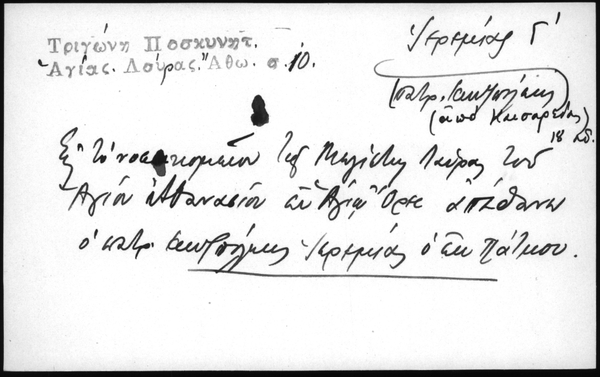 Τριγώνη Ποσκυνητ.
Ἁγίας. Λαύρας." Ἄθω. σ. 10.
Ἱερεμίας Γ'
(πατρ. Κωνσ/πόλεως
(ἀπὸ Καισαρείας)
18 αἰ.
Εἰς τὸ νοσοκομεῖον τῆς Μεγίστης Λαύρας τοῦ
Ἁγίου Ἀθανασίου ἐν Ἁγίῳ Ὄρει ἀπέθανεν
ὁ πατρ. Κων/πόλεως Ἱερεμίας ὁ ἐκ Πάτμου.